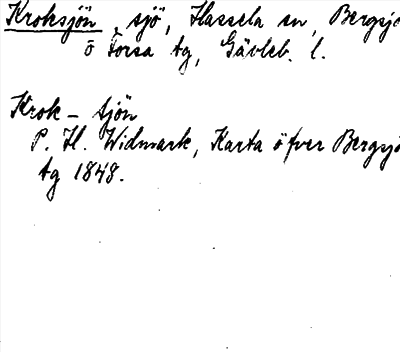 Kroksjön, sjö, Hassela sn, Bergsjö
o Forsa tg, Gävleb. l.
Krok-sjön
P. H. Widmark, Karta öfver Bergsjö
tg 1848.